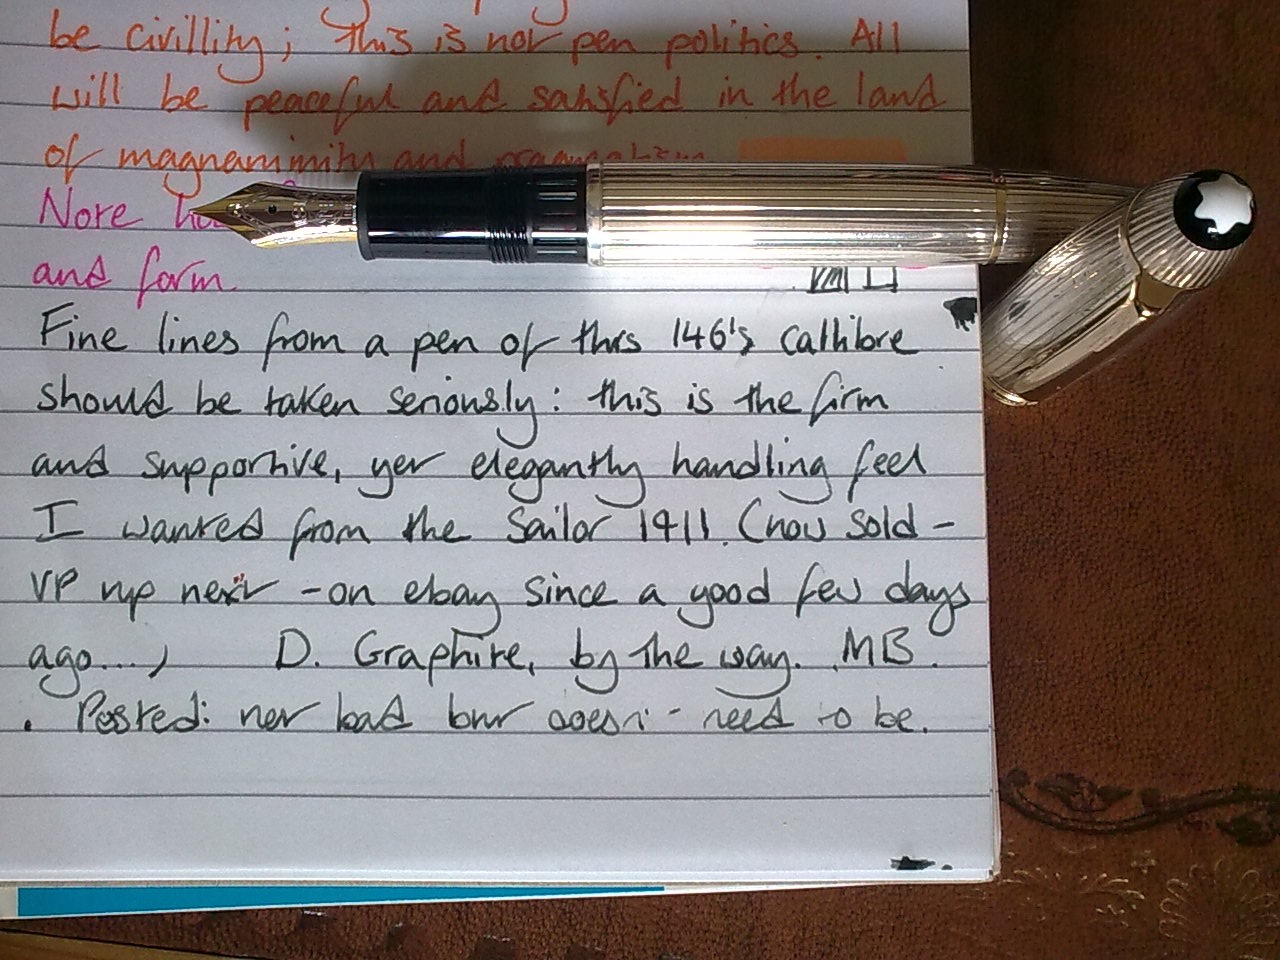 be civillity; this is not pen politics. All
will be peaceful and satisfied in the land
of magnanimity and pragmatism
Note
and form.
Fine lines from a pen of this 146's callibre
should be taken seriously: this is the firm
and supportive, yet elegantly handling feel
I wanted from the Sailor 1911. (now sold -
VP up next - on ebay since a good few days
ago...) D. Graphite, by the way. MB.
. Posted: not bad but doesn't need to be.